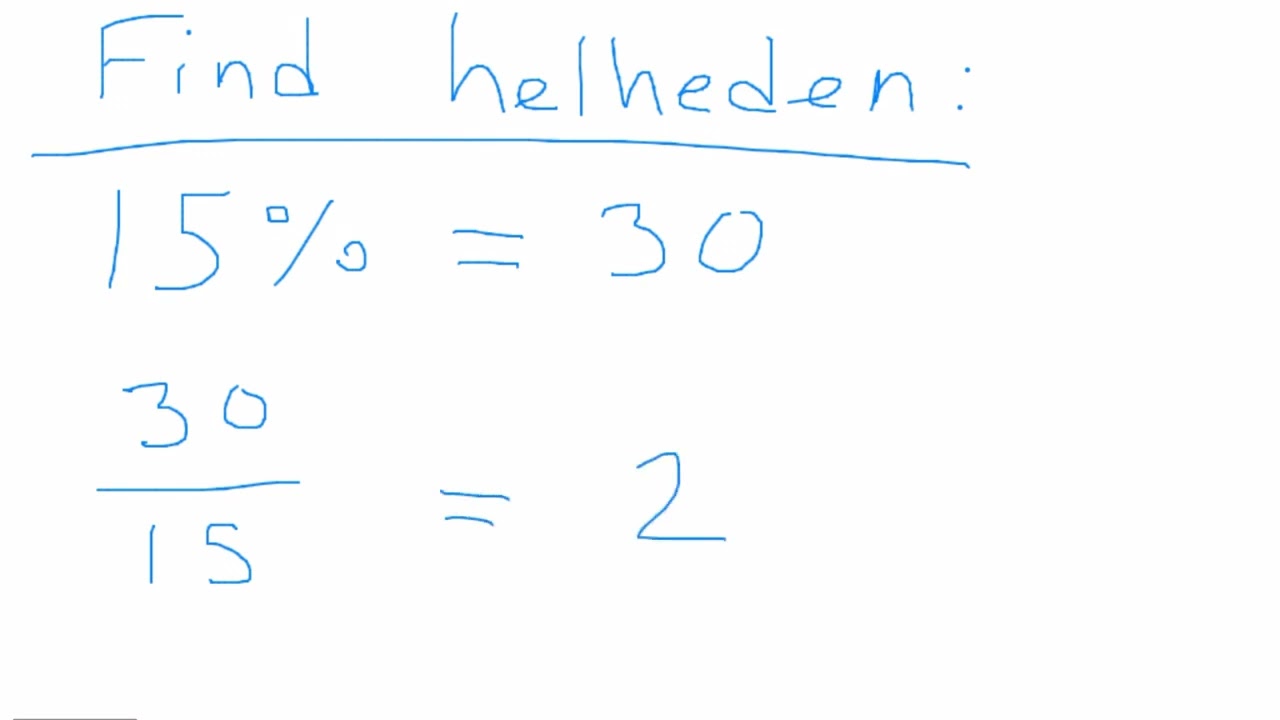 Find helheden:
15% = 30
30
15
= 2